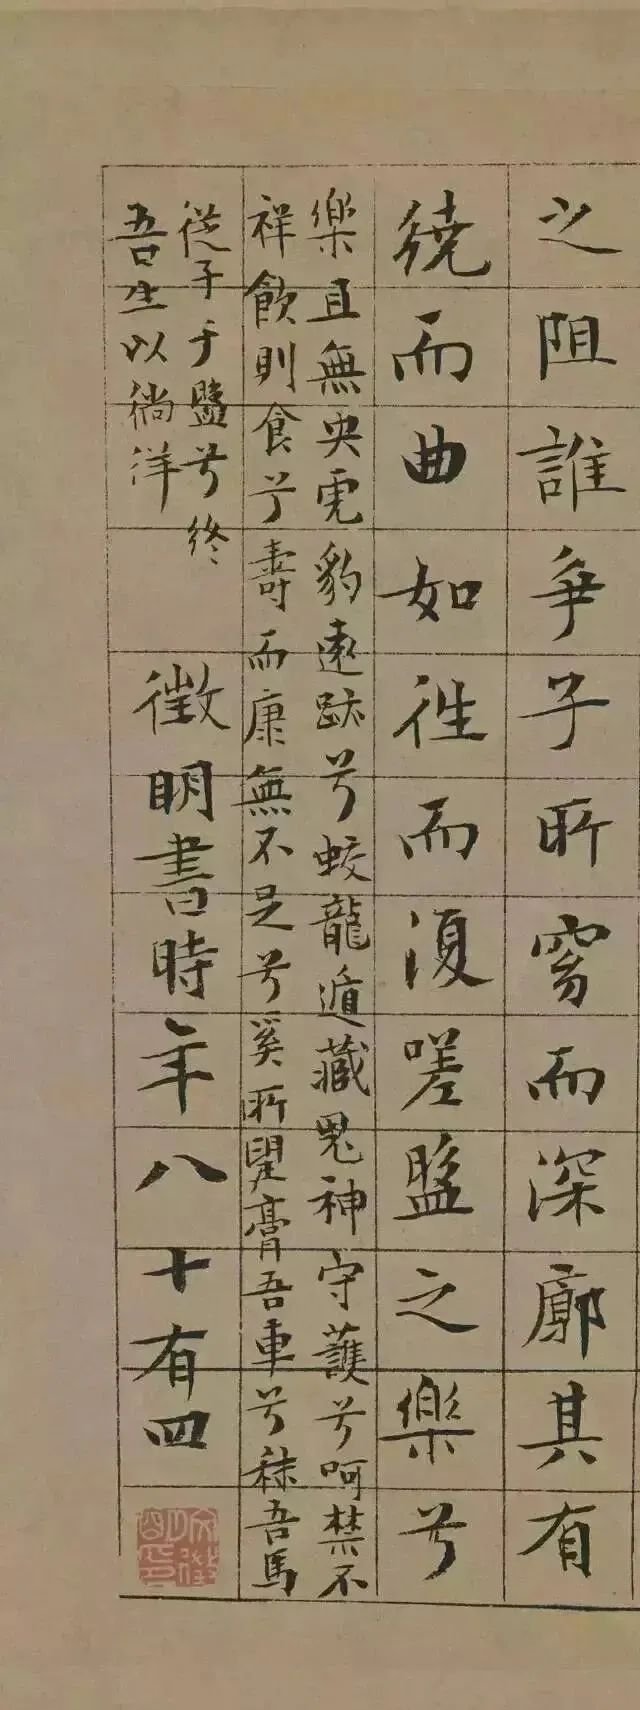 之阻誰爭子所窈而深廓其有
繞而曲如往而復嗟盤之樂兮
樂且無央虎豹遠跡兮蛟龍遁藏鬼神守護兮呵禁不
祥飲則食兮壽而康無不足兮奚所望膏吾車兮秣吾馬
從子于盤兮終
吾生以徜洋
徵明書時年八十有四
文徵明印